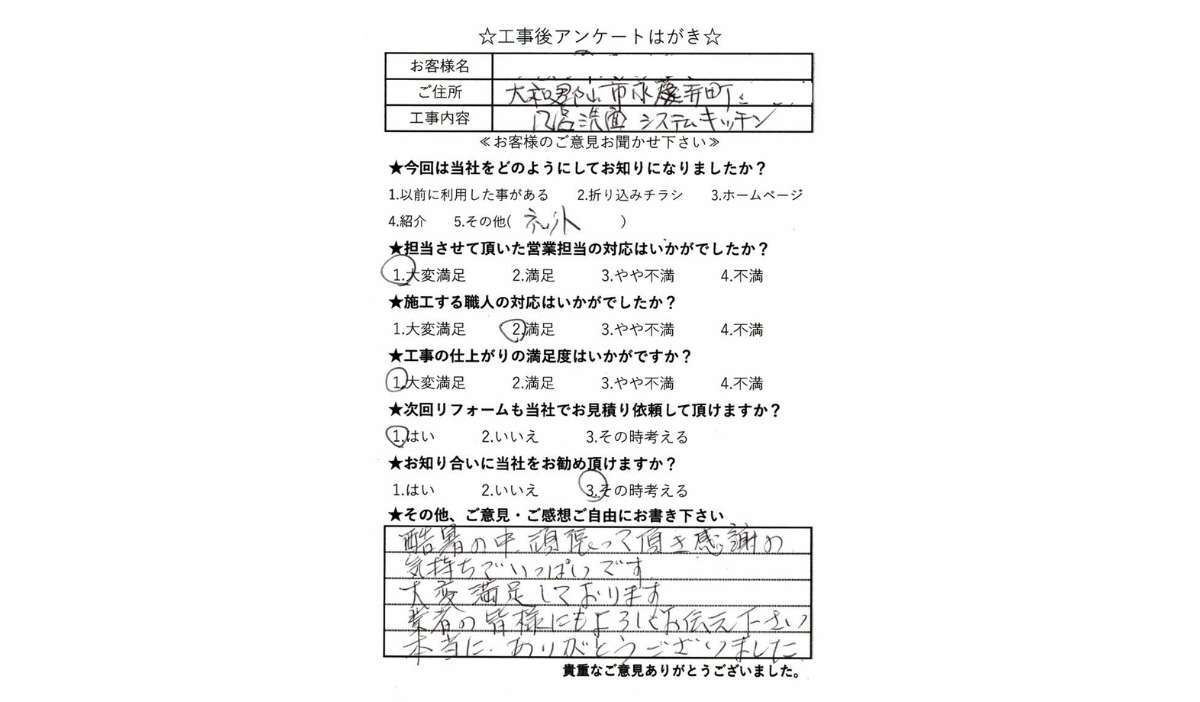 ☆工事後アンケートはがき☆
お客様名
ご住所 大和郡山市永慶寺町
工事内容 風呂洗面 システムキッチン
≪お客様のご意見お聞かせ下さい≫
★今回は当社をどのようにしてお知りになりましたか？
1.以前に利用した事がある 2.折り込みチラシ 3.ホームページ
4.紹介 5.その他( ネット )
★担当させて頂いた営業担当の対応はいかがでしたか？
1.大変満足 2.満足 3.やや不満 4.不満
★施工する職人の対応はいかがでしたか？
1.大変満足 2.満足 3.やや不満 4.不満
★工事の仕上がりの満足度はいかがですか？
1.大変満足 2.満足 3.やや不満 4.不満
★次回リフォームも当社でお見積り依頼して頂けますか？
1.はい 2.いいえ 3.その時考える
★お知り合いに当社をお勧め頂けますか？
1.はい 2.いいえ 3.その時考える
★その他、ご意見・ご感想ご自由にお書き下さい
酷暑の中 頑張って頂き感謝の
気持ちでいっぱいです
大変満足しております
業者の皆様にもよろしくお伝え下さい
本当に ありがとうございました
貴重なご意見ありがとうございました。